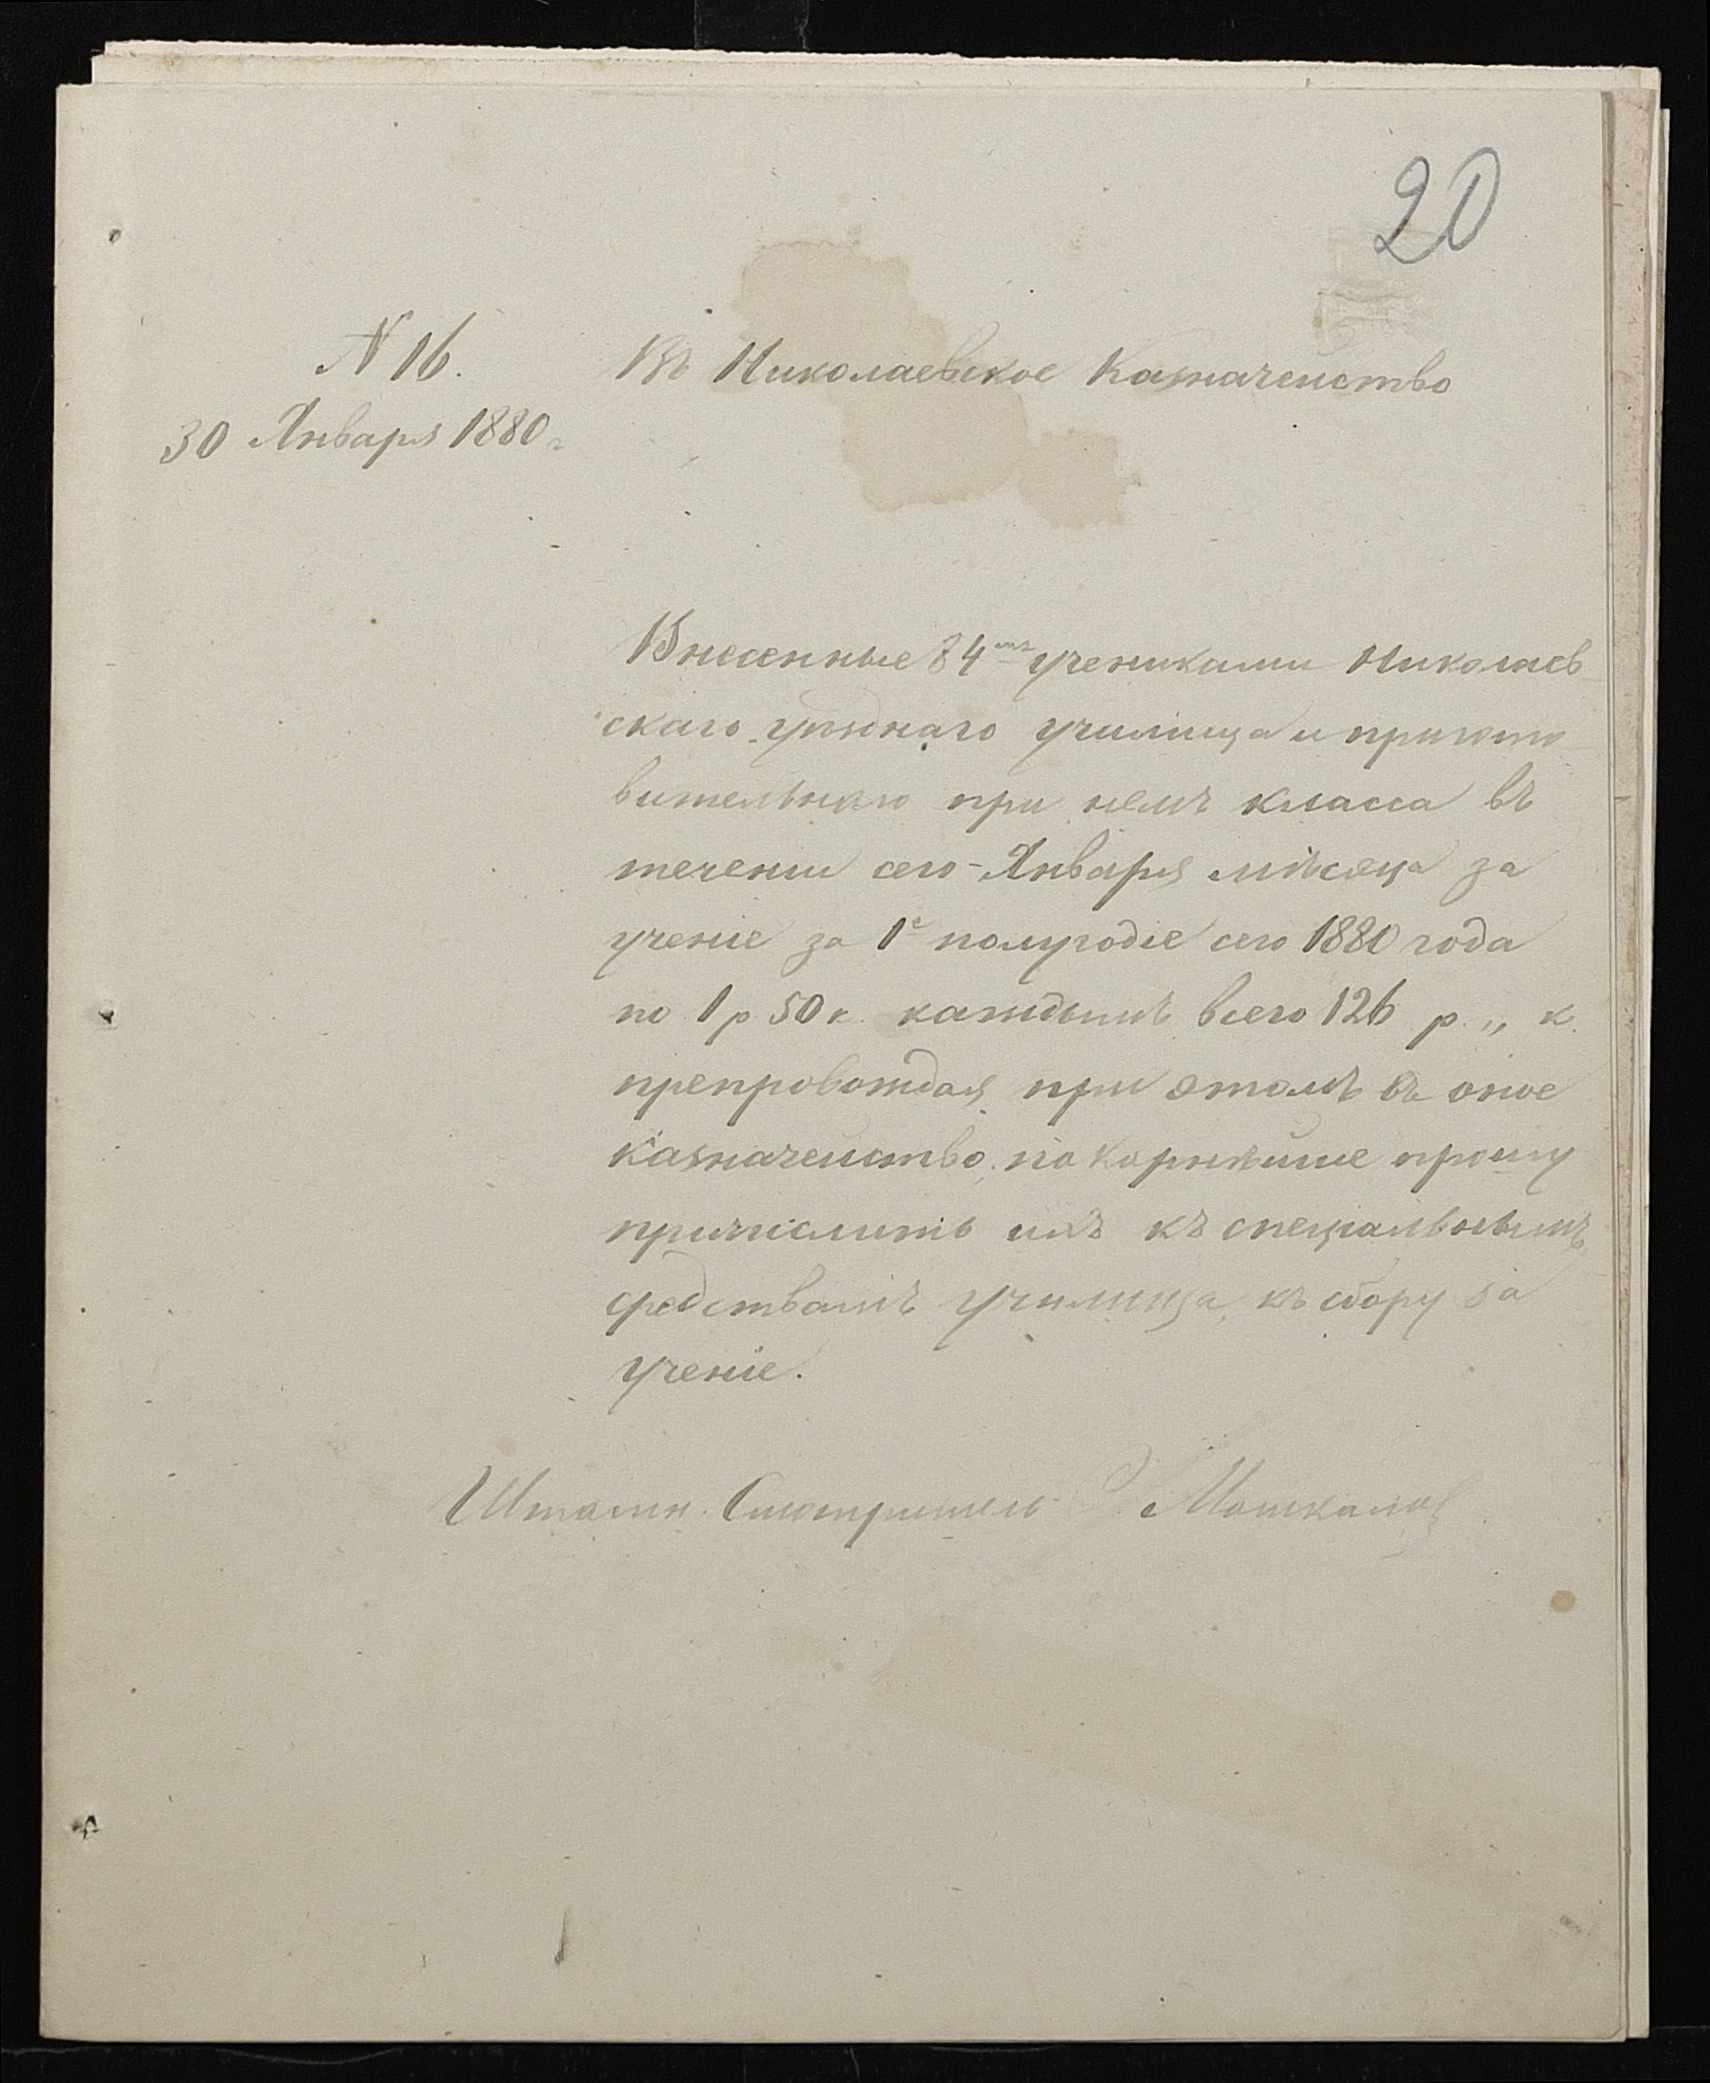 20
N 16.
Въ Николаевское Казначейство
30 Января 1880 г.
Внесенные 84мя учениками Николаев
скаго уѣзднаго училища и пригото
вительнаго при немъ класса въ
теченіи сего-Января мѣсяца за
ученіе за 1е полугодіе сего 1880 года
по 1 р 50 к. каждымъ всего 126 р. „ к.
препровождая при этомъ въ оное
казначейство, покорнѣйше прошу
причислить ихъ къ спеціальнымъ
средствамъ училища, къ сбору за
ученіе.
Штатн. Смотритель